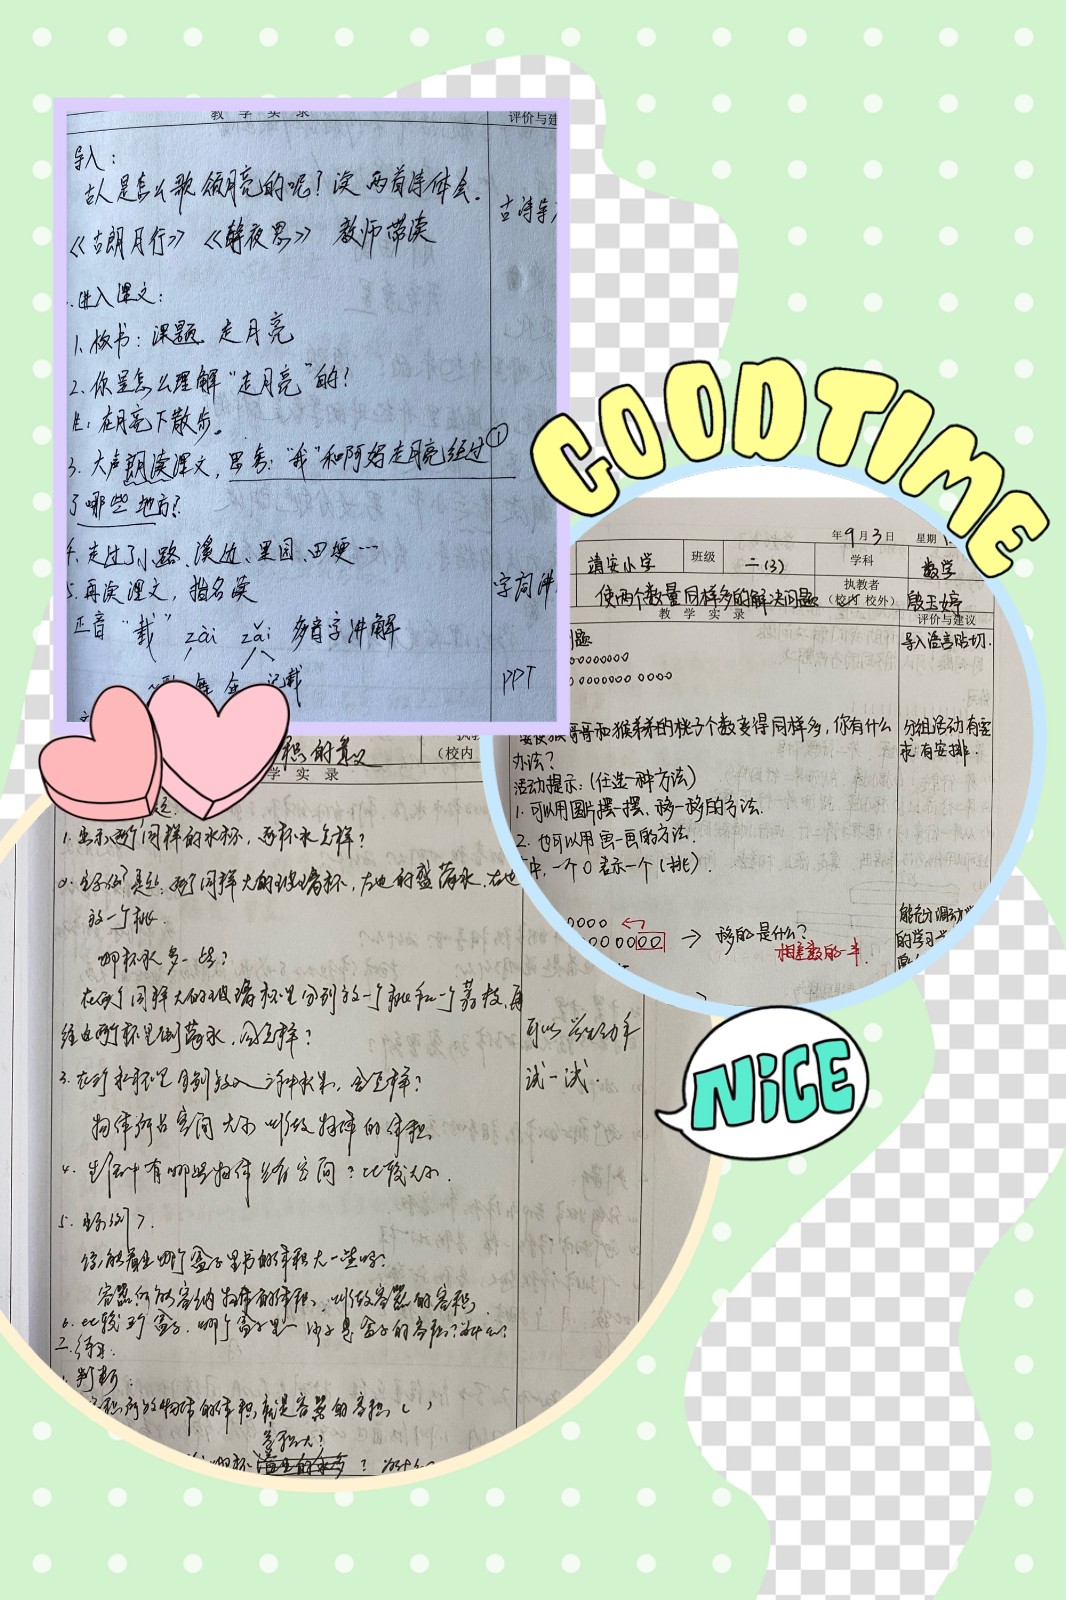 教 学 实 录
评价与建
导入：
古人是怎么歌颂月亮的呢？读两首诗体会。
《古朗月行》《静夜思》 教师带读
古诗导入
进入课文：
1、板书：课题 走月亮
2、你是怎么理解“走月亮”的？
生：在月亮下散步。
3、大声朗读课文，思考：“我”和阿妈走月亮经过①
了哪些地方？
4、走过了小路、溪边、果园、田埂…
5、再读课文，指名读
字词讲
正音 “载” zài zǎi 多音字讲解
记载
PPT
GOODTIME
年9月3日 星期
靖安小学 班级 二（3） 学科 数学
使两个数量同样多的解决问题 执教者（校内 校外） 殷玉婷
教 学 实 录
评价与建议
导入语言贴切.
题
要使猴哥哥和猴弟弟的桃子个数变得同样多，你有什么
办法？
分组活动有要
求有安排.
活动提示：（任选一种方法）
1. 可以用图片摆一摆、移一移的方法.
2. 也可以用画一画的方法.
一个○表示一个（桃）.
→ 移的是什么？
相差数的一半.
能充分调动学
的学习
NiCE
积的意义
（校内
学 实 录
1. 出示两个同样的水杯，两杯水怎样？
2. 出示例1具些：两个同样大的玻璃杯，左边的盛满水，右边
放一个桃.
哪杯水多一些？
在两个同样大的玻璃杯里分别放一个桃和一个荔枝，再
往这两个杯里倒满水，会怎样？
可以学生动手
试一试.
物体所占空间大小叫做物体的体积
4. 生活中有哪些物体占有空间？比较大小.
5. 出示例2.
你能看出哪个盒子里书的体积大一些吗？
容器所能容纳物体的体积，叫做容器的容积.
二. 练习：
判断：
容积大？